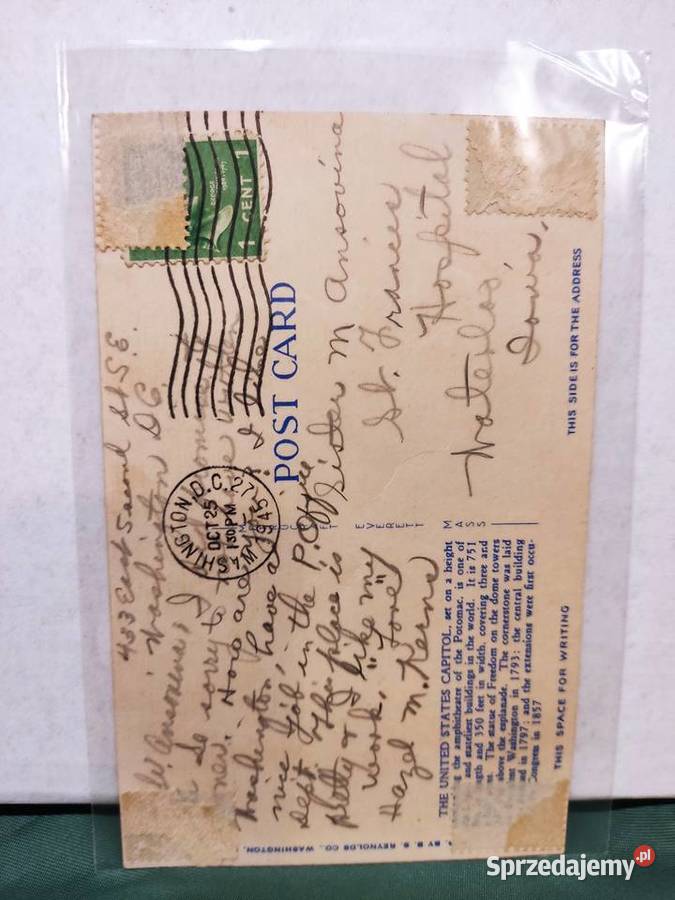 433 East Second St S.E.
Washington D.C.
So sorry I
How are you? I like
Washington, have a
nice job in the P. Office
Dept. This place is
pretty & I like my
work, "Love"
Hazel M.
WASHINGTON, D.C. 27
OCT 25
1 30 PM
1945
GEORGE
1 CENT 1
POST CARD
Sister M Ansovina
St. Francis
Hospital
Waterloo,
Iowa.
THIS SIDE IS FOR THE ADDRESS
EVERETT
MASS
THE UNITED STATES CAPITOL, set on a height
the amphitheatre of the Potomac, is one of
and stateliest buildings in the world. It is 751
ngth and 350 feet in width, covering three and
The statue of Freedom on the dome towers
above the esplanade. The cornerstone was laid
Washington in 1793; the central building
ed in 1827; and the extensions were first occu-
Congress in 1857
THIS SPACE FOR WRITING
BY B. S. REYNOLDS CO., WASHINGTON,
Sprzedajemy.pl